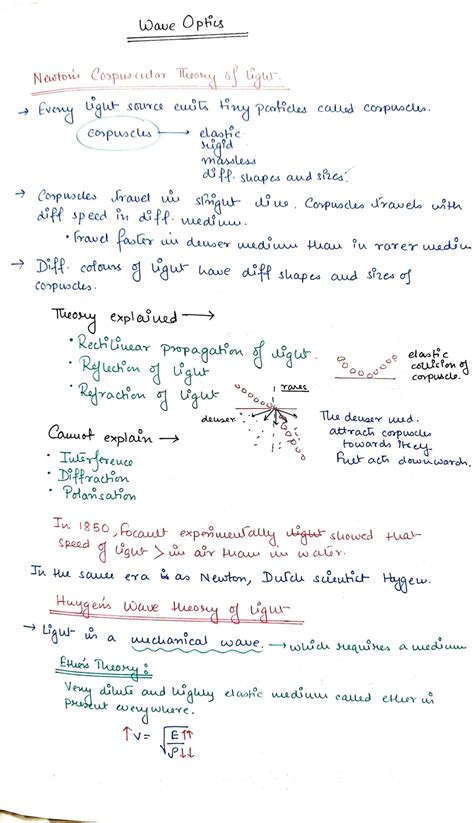 Wave Optics
Newton's Corpuscular Theory of Light.
→ Every light source emits tiny particles called corpuscles.
corpuscles → elastic
rigid
massless
diff. shapes and sizes.
→ Corpuscles travel in straight line. Corpuscles travels with
diff speed in diff. medium.
• Travel faster in denser medium than in rarer medium
→ Diff. colours of light have diff shapes and sizes of
corpuscles.
Theory explained →
• Rectilinear propagation of light.
• Reflection of light
• Refraction of light
elastic
collision of
corpuscle.
rarer
denser
The denser med.
attracts corpuscles
towards itself.
Fnet acts downwards.
Cannot explain →
• Interference
• Diffraction
• Polarisation
In 1850, Focault experimentally light showed that
speed of light > in air than in water.
In the same era is as Newton, Dutch scientist Hygen.
Huygen's Wave theory of light
→ Light is a mechanical wave. → which requires a medium
Ether's Theory:
Very dilute and highly elastic medium called ether is
present everywhere.
↑V = √E↑↑/ρ↓↓